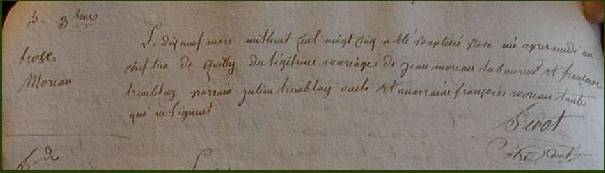 B. 3ème
rose
Moreau
Le dix neuf mars mil huit cent vingt cinq a été baptisée rose née avant midi au
chef lieu de quilly du légitime mariage de jean moreau laboureur et françoise
tremblay parrain julien tremblay oncle et marraine françoise moreau tante
qui ne signent